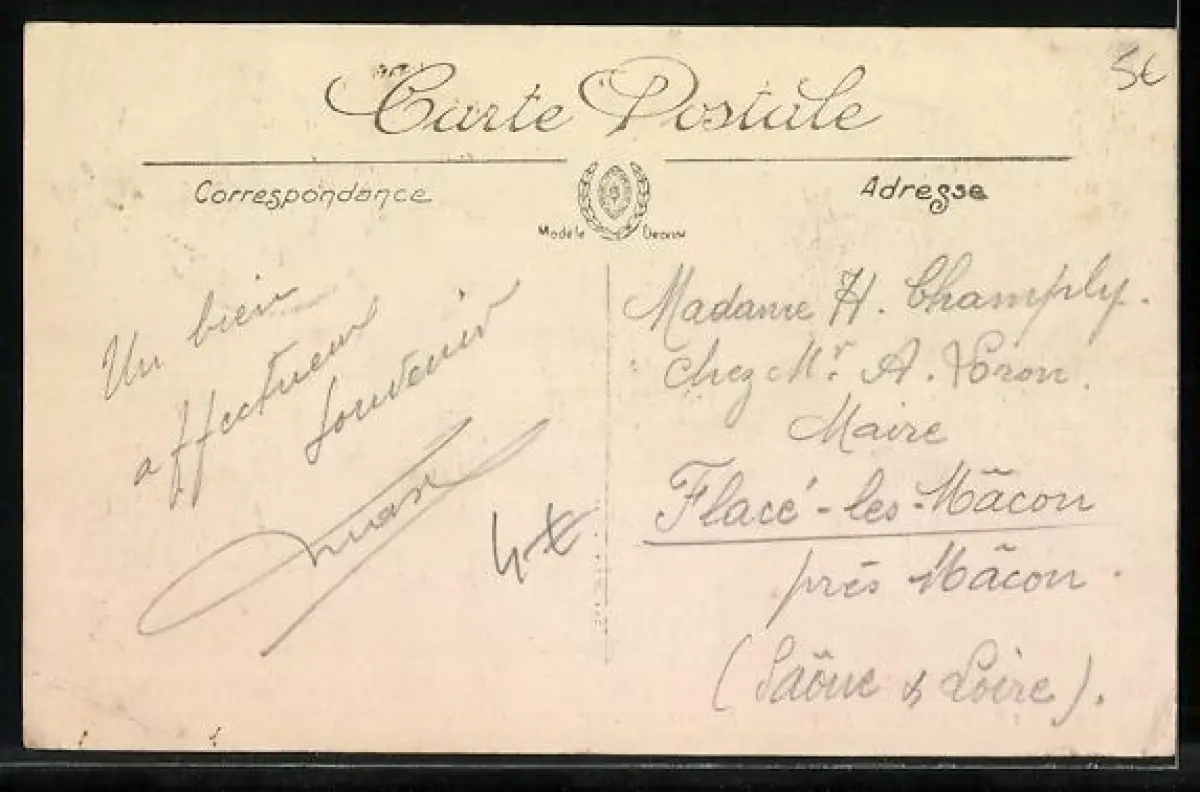 5€
Carte Postale
Correspondance
Adresse
Modèle
Un bien
affectueux
souvenir
4x
Madame H. Champly.
chez Mr A.
Maire
Flacé-les-Mâcon
près Mâcon.
(Saône & Loire).